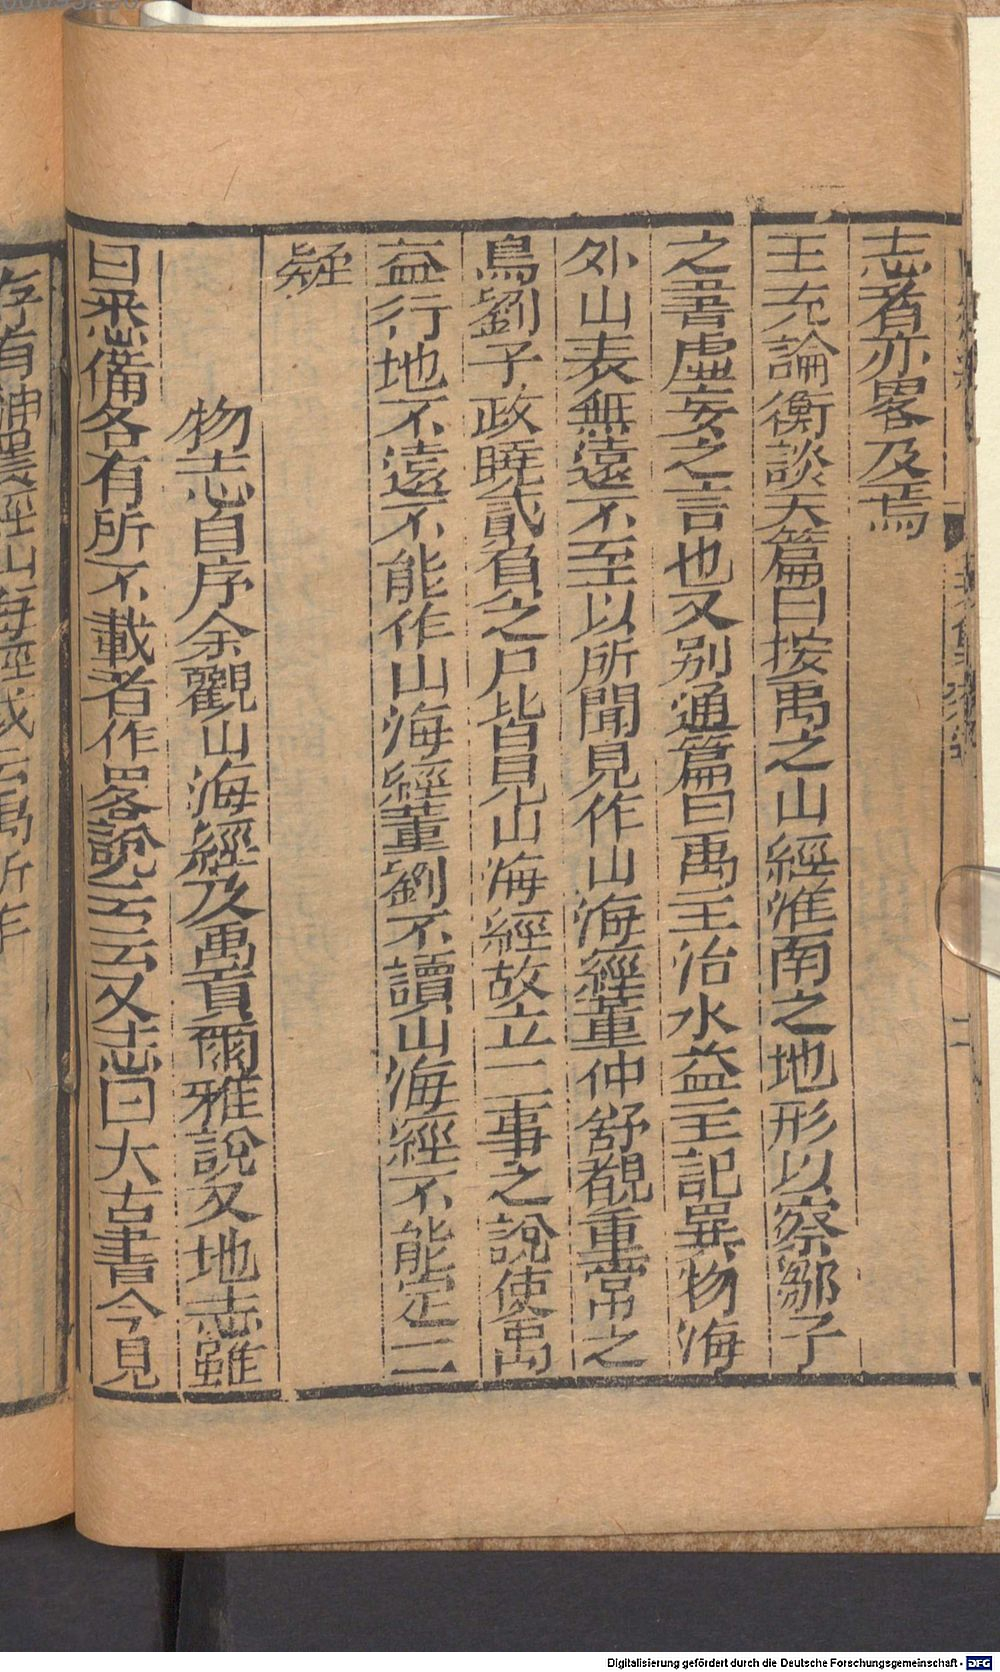 志者亦畧及焉
王充論衡談天篇曰按禹之山經淮南之地形以察鄒子
之書虛妄之言也又别通篇曰禹主治水益主記異物海
外山表無遠不至以所聞見作山海經董仲舒覩重常之
鳥劉子政曉貳負之尸皆見山海經故立二事之說使禹
益行地不遠不能作山海經董劉不讀山海經不能定二
疑
物志自序余觀山海經及禹貢爾雅說文地志雖
曰悉備各有所不載者作畧說云云又志曰大古書今見
存有神農經山海經或云禹所作
Digitalisierung gefördert durch die Deutsche Forschungsgemeinschaft - DFG